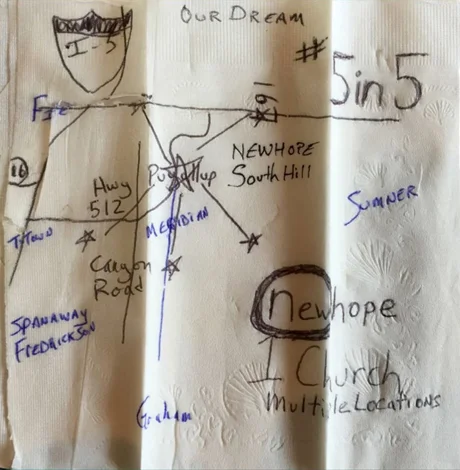 OUR DREAM
I-5
#5in5
Fife
167
16
NEWHOPE
South Hill
Puyallup
Hwy
512
SUMNER
MERIDIAN
T-TOWN
Canyon
Road
newhope
SPANAWAY
FREDRICKSON
1 Church
Multiple Locations
Graham